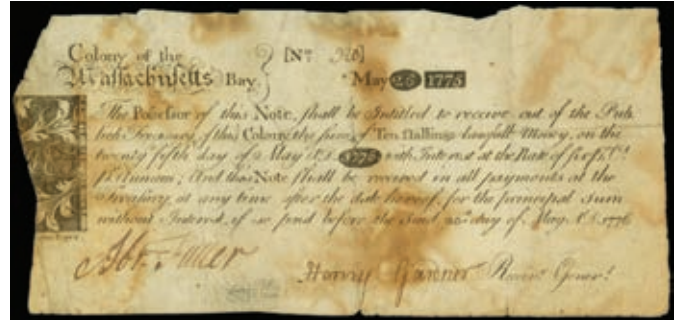 Colony of the [No 326]
Massachusetts Bay. May 25 1775
The Possessor of this Note, shall be Intitled to receive out of the Pub
lick Treasury of this Colony, the sum of Ten Shillings lawfull Money, on the
twenty fifth day of May 1776 with Interest at the Rate of
Annum; And this Note shall be received in all payments at the
Treasury, at any time after the date hereof, for the principal Sum
without Interest, if so paid before the said day of May 1776
Abr. Fuller
Henry Gardner Receivr. Generl.